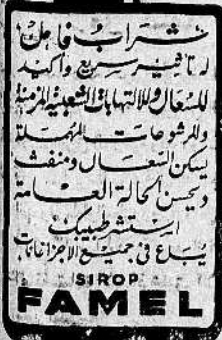 شراب فامل
له تاثير سريع وأكيد
للسعال وللالتهابات الشعبية المزمنة
وللرشوحات المهملة
يسكن السعال ومنفث
ويحسن الحالة العامة
استشر طبيبك
يباع في جميع الاجزاخانات
SIROP
FAMEL